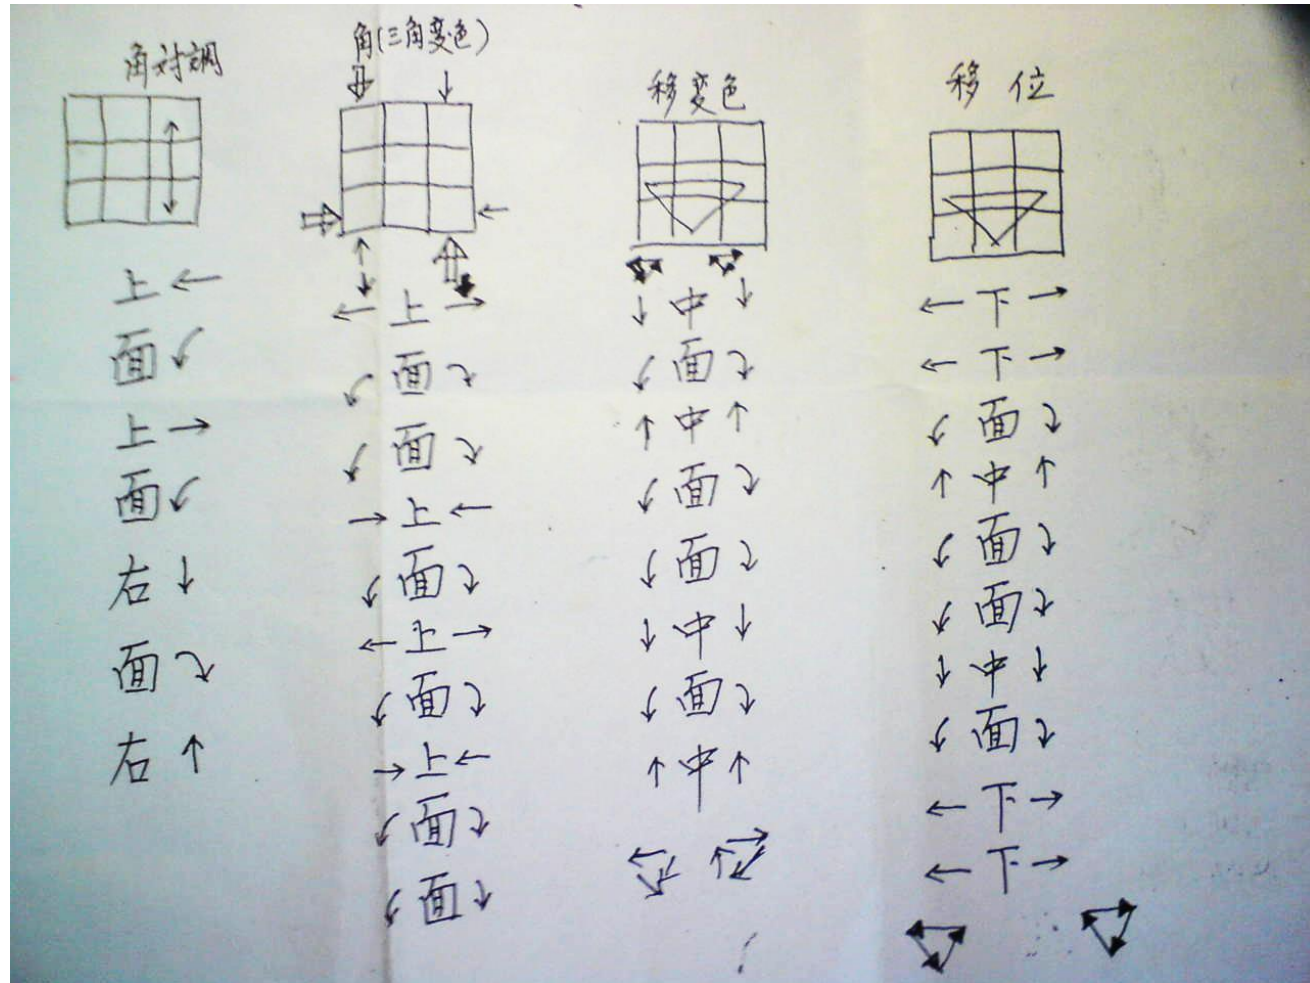 角対調
上
面
上
面
右
面
右
角(三角変色)
上
面
面
上
面
上
面
上
面
面
移変色
中
面
中
面
面
中
面
中
移位
下
下
面
中
面
面
中
面
下
下